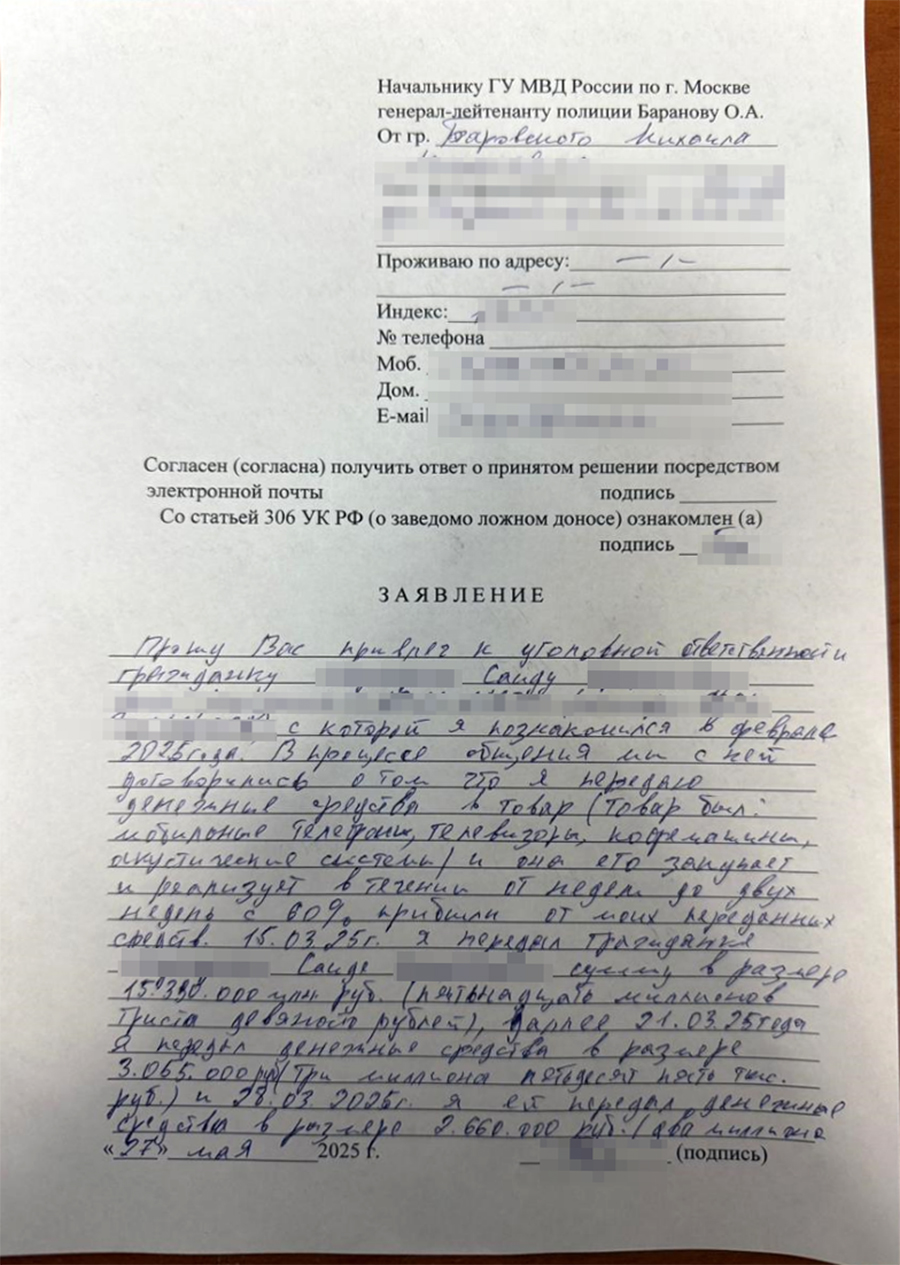 Начальнику ГУ МВД России по г. Москве
генерал-лейтенанту полиции Баранову О.А.
От гр. Михаила
Проживаю по адресу: — / —
— / —
Индекс:
№ телефона
Моб.
Дом.
E-mail
Согласен (согласна) получить ответ о принятом решении посредством
электронной почты подпись
Со статьей 306 УК РФ (о заведомо ложном доносе) ознакомлен (а)
подпись
ЗАЯВЛЕНИЕ
Прошу Вас привлеч к уголовной ответственности
гражданку Саиду
с которой я познакомился в феврале
2025 года. В процессе общения мы с ней
договорились о том что я передаю
денежные средства в товар (товар был:
мобильные телефоны, телевизоры, кофемашины,
акустические системы) и она его закупает
и реализует в течении от недели до двух
недель с 60% прибыли от моих переданных
средств. 15.03.25г. я передал гражданке
Саиде сумму в размере
15.390.000 млн руб. (пятьнадцать миллионов
триста девяносто рублей), далее 21.03.25 года
я передал денежные средства в размере
3.055.000 руб (три миллиона пятьдесят пять тыс.
руб.) и 28.03.2025г. я ей передал денежные
средства в размере 2.660.000 руб. (два миллиона
«27» мая 2025 г. (подпись)